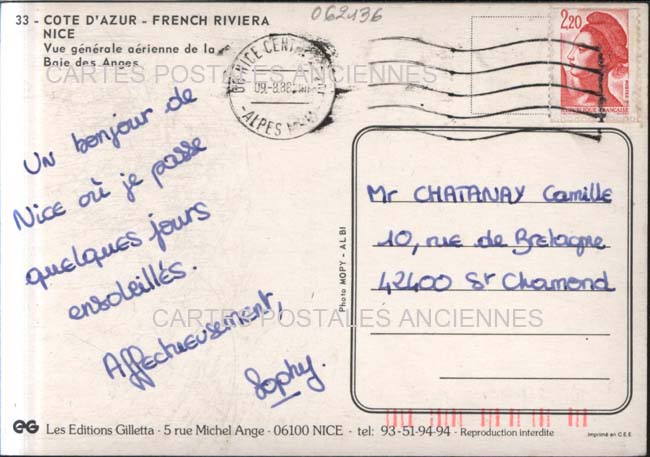 33 - COTE D'AZUR - FRENCH RIVIERA
NICE
Vue générale aérienne de la
Baie des Anges
062136
06 NICE-CENTRE
09-8.88
ALPES
2,20
REPUBLIQUE FRANÇAISE
CARTES POSTALES ANCIENNES
Un bonjour de
Nice où je passe
quelques jours
ensoleillés.
Affectueusement,
Sophy.
Photo MOPY - ALBI
Mr CHATANAY Camille
10, rue de Bretagne
42400 St Chamond
CARTES POSTALES ANCIENNES
EG Les Editions Gilletta - 5 rue Michel Ange - 06100 NICE - tel: 93-51-94-94 - Reproduction interdite
Imprimé en C.E.E.